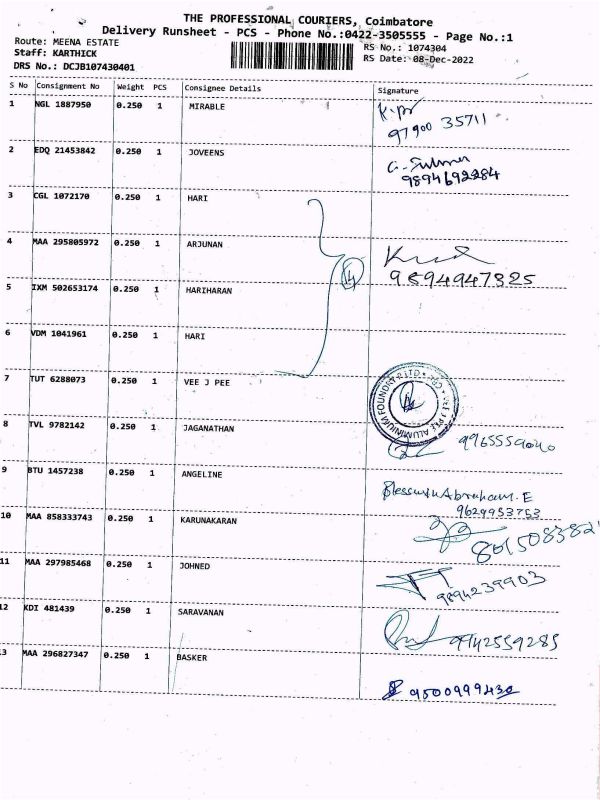 THE PROFESSIONAL COURIERS, Coimbatore
Delivery Runsheet - PCS - Phone No.:0422-3505555 - Page No.:1
Route: MEENA ESTATE
RS No.: 1074304
Staff: KARTHICK
RS Date: 08-Dec-2022
DRS No.: DCJB107430401
S No Consignment No Weight PCS Consignee Details Signature
1 NGL 1887950 0.250 1 MIRABLE
97900 35711
2 EDQ 21453842 0.250 1 JOVEENS
9894692284
3 CGL 1072170 0.250 1 HARI
4 MAA 295805972 0.250 1 ARJUNAN
9894947325
5 IXM 502653174 0.250 1 HARIHARAN
6 VDM 1041961 0.250 1 HARI
7 TUT 6288073 0.250 1 VEE J PEE
VEE J PEE ALUMINIUM FOUNDRY (P) LTD
8 TVL 9782142 0.250 1 JAGANATHAN
9965559040
9 BTU 1457238 0.250 1 ANGELINE
Abraham. E
9629953753
10 MAA 858333743 0.250 1 KARUNAKARAN
8015083821
11 MAA 297985468 0.250 1 JOHNED
9894239903
12 KDI 481439 0.250 1 SARAVANAN
9942559285
3 MAA 296827347 0.250 1 BASKER
9500999430